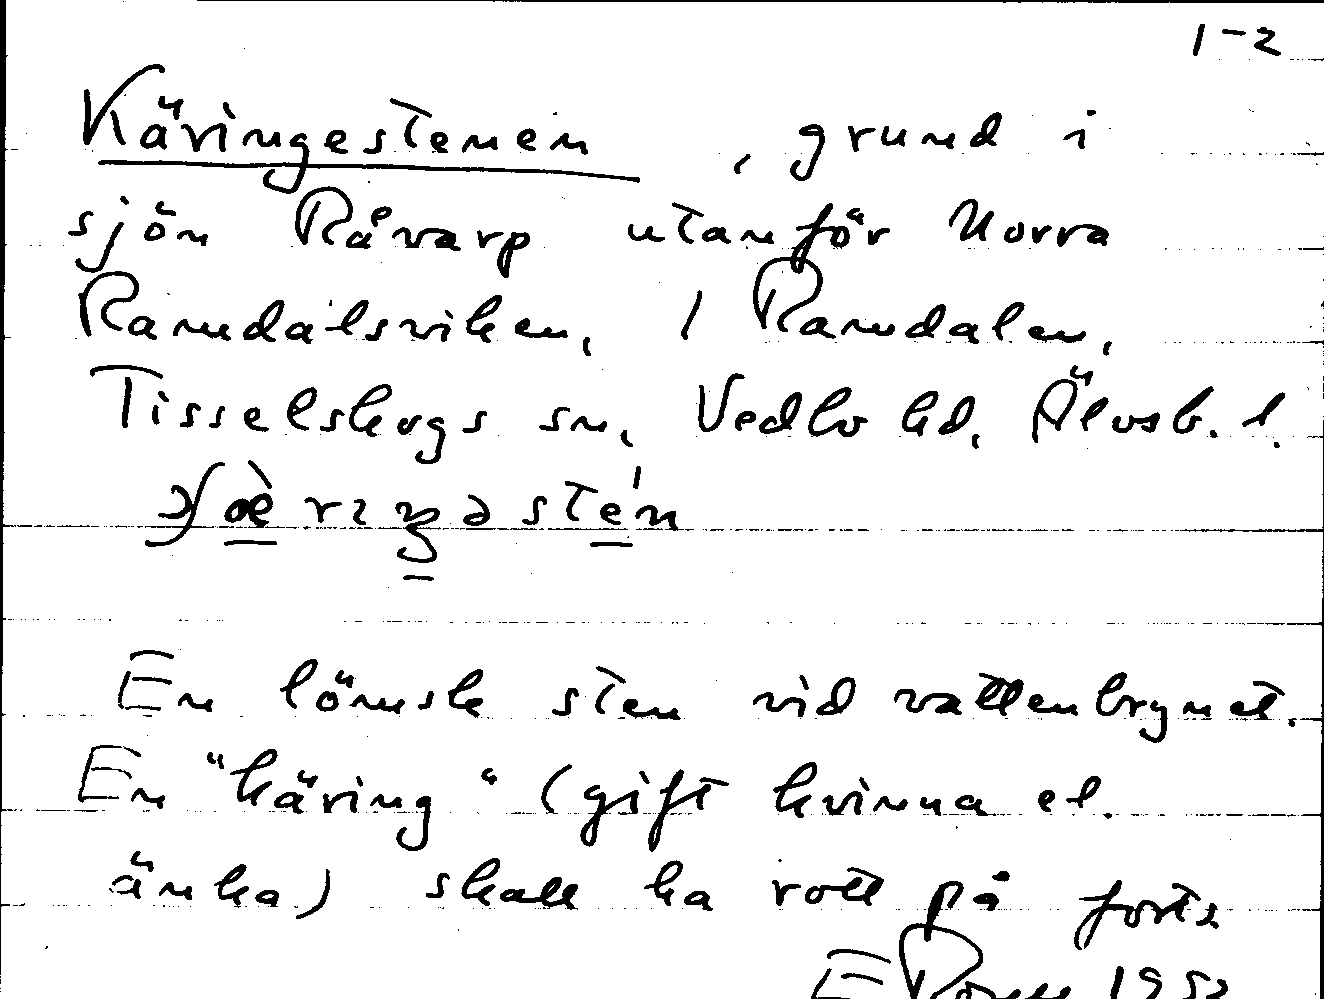 1-2
Käringestenen , grund i
sjön Råvarp utanför Norra
Ramdalsviken, 1 Ramdalen,
Tisselskogs sn, Vedbo hd, Älvsb. l.
En lömsk sten vid vattenbrynet.
En "käring" (gift kvinna el.
änka) skall ha rott på forts
E